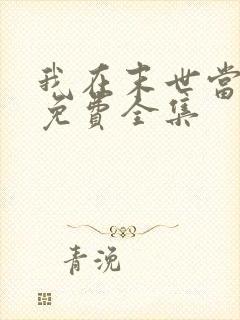 我在末世當
免費全集
青浼